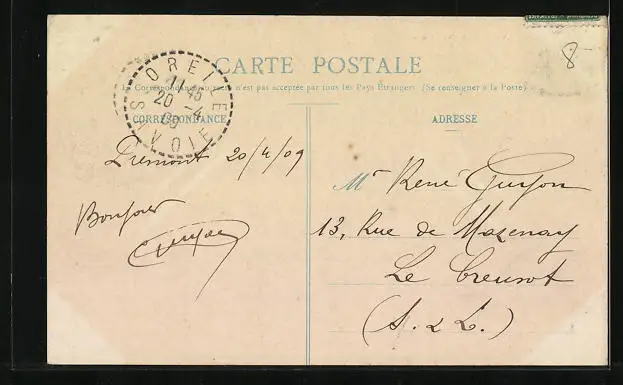 CARTE POSTALE
La Correspondance au recto n'est pas acceptée par tous les Pays Étrangers (Se renseigner à la Poste)
CORRESPONDANCE
ADRESSE
ORELLE
11 45
20 -4
09
SAVOIE
8
20/4/09
Bonjour
Mr René Guyon
13, Rue de Mazenay
Le Creusot
(S. & L.)